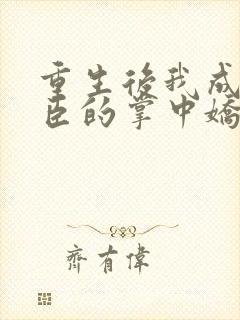 重生後我成
臣的掌中嬌
齊有偉